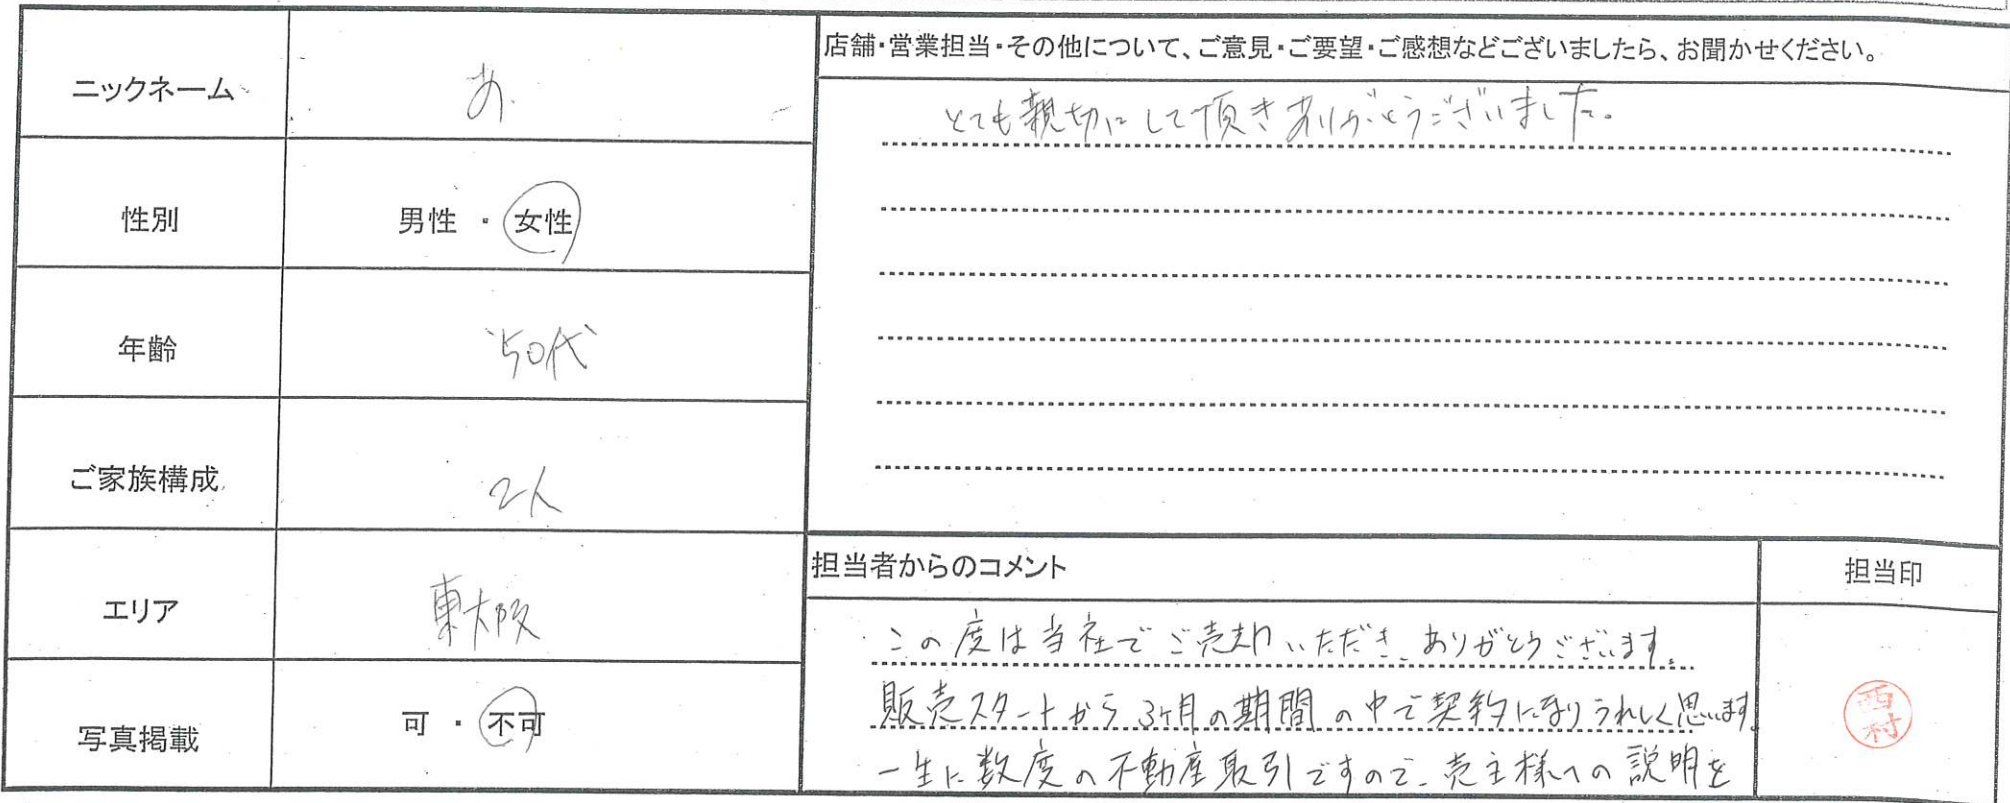 ニックネーム
あ
性別
男性 ・ 女性
年齢
50代
ご家族構成
2人
エリア
東大阪
写真掲載
可 ・ 不可
店舗・営業担当・その他について、ご意見・ご要望・ご感想などございましたら、お聞かせください。
とても親切にして頂きありがとうございました。
担当者からのコメント
この度は当社でご売却いただき、ありがとうございます。
販売スタートから3ヶ月の期間の中で契約になりうれしく思います。
一生に数度の不動産取引ですので、売主様への説明を
担当印
西村